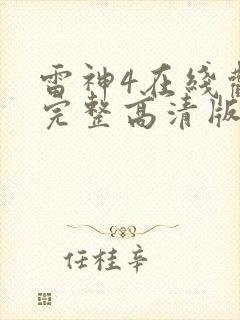 雷神4在线
完整高清版
任桂辛